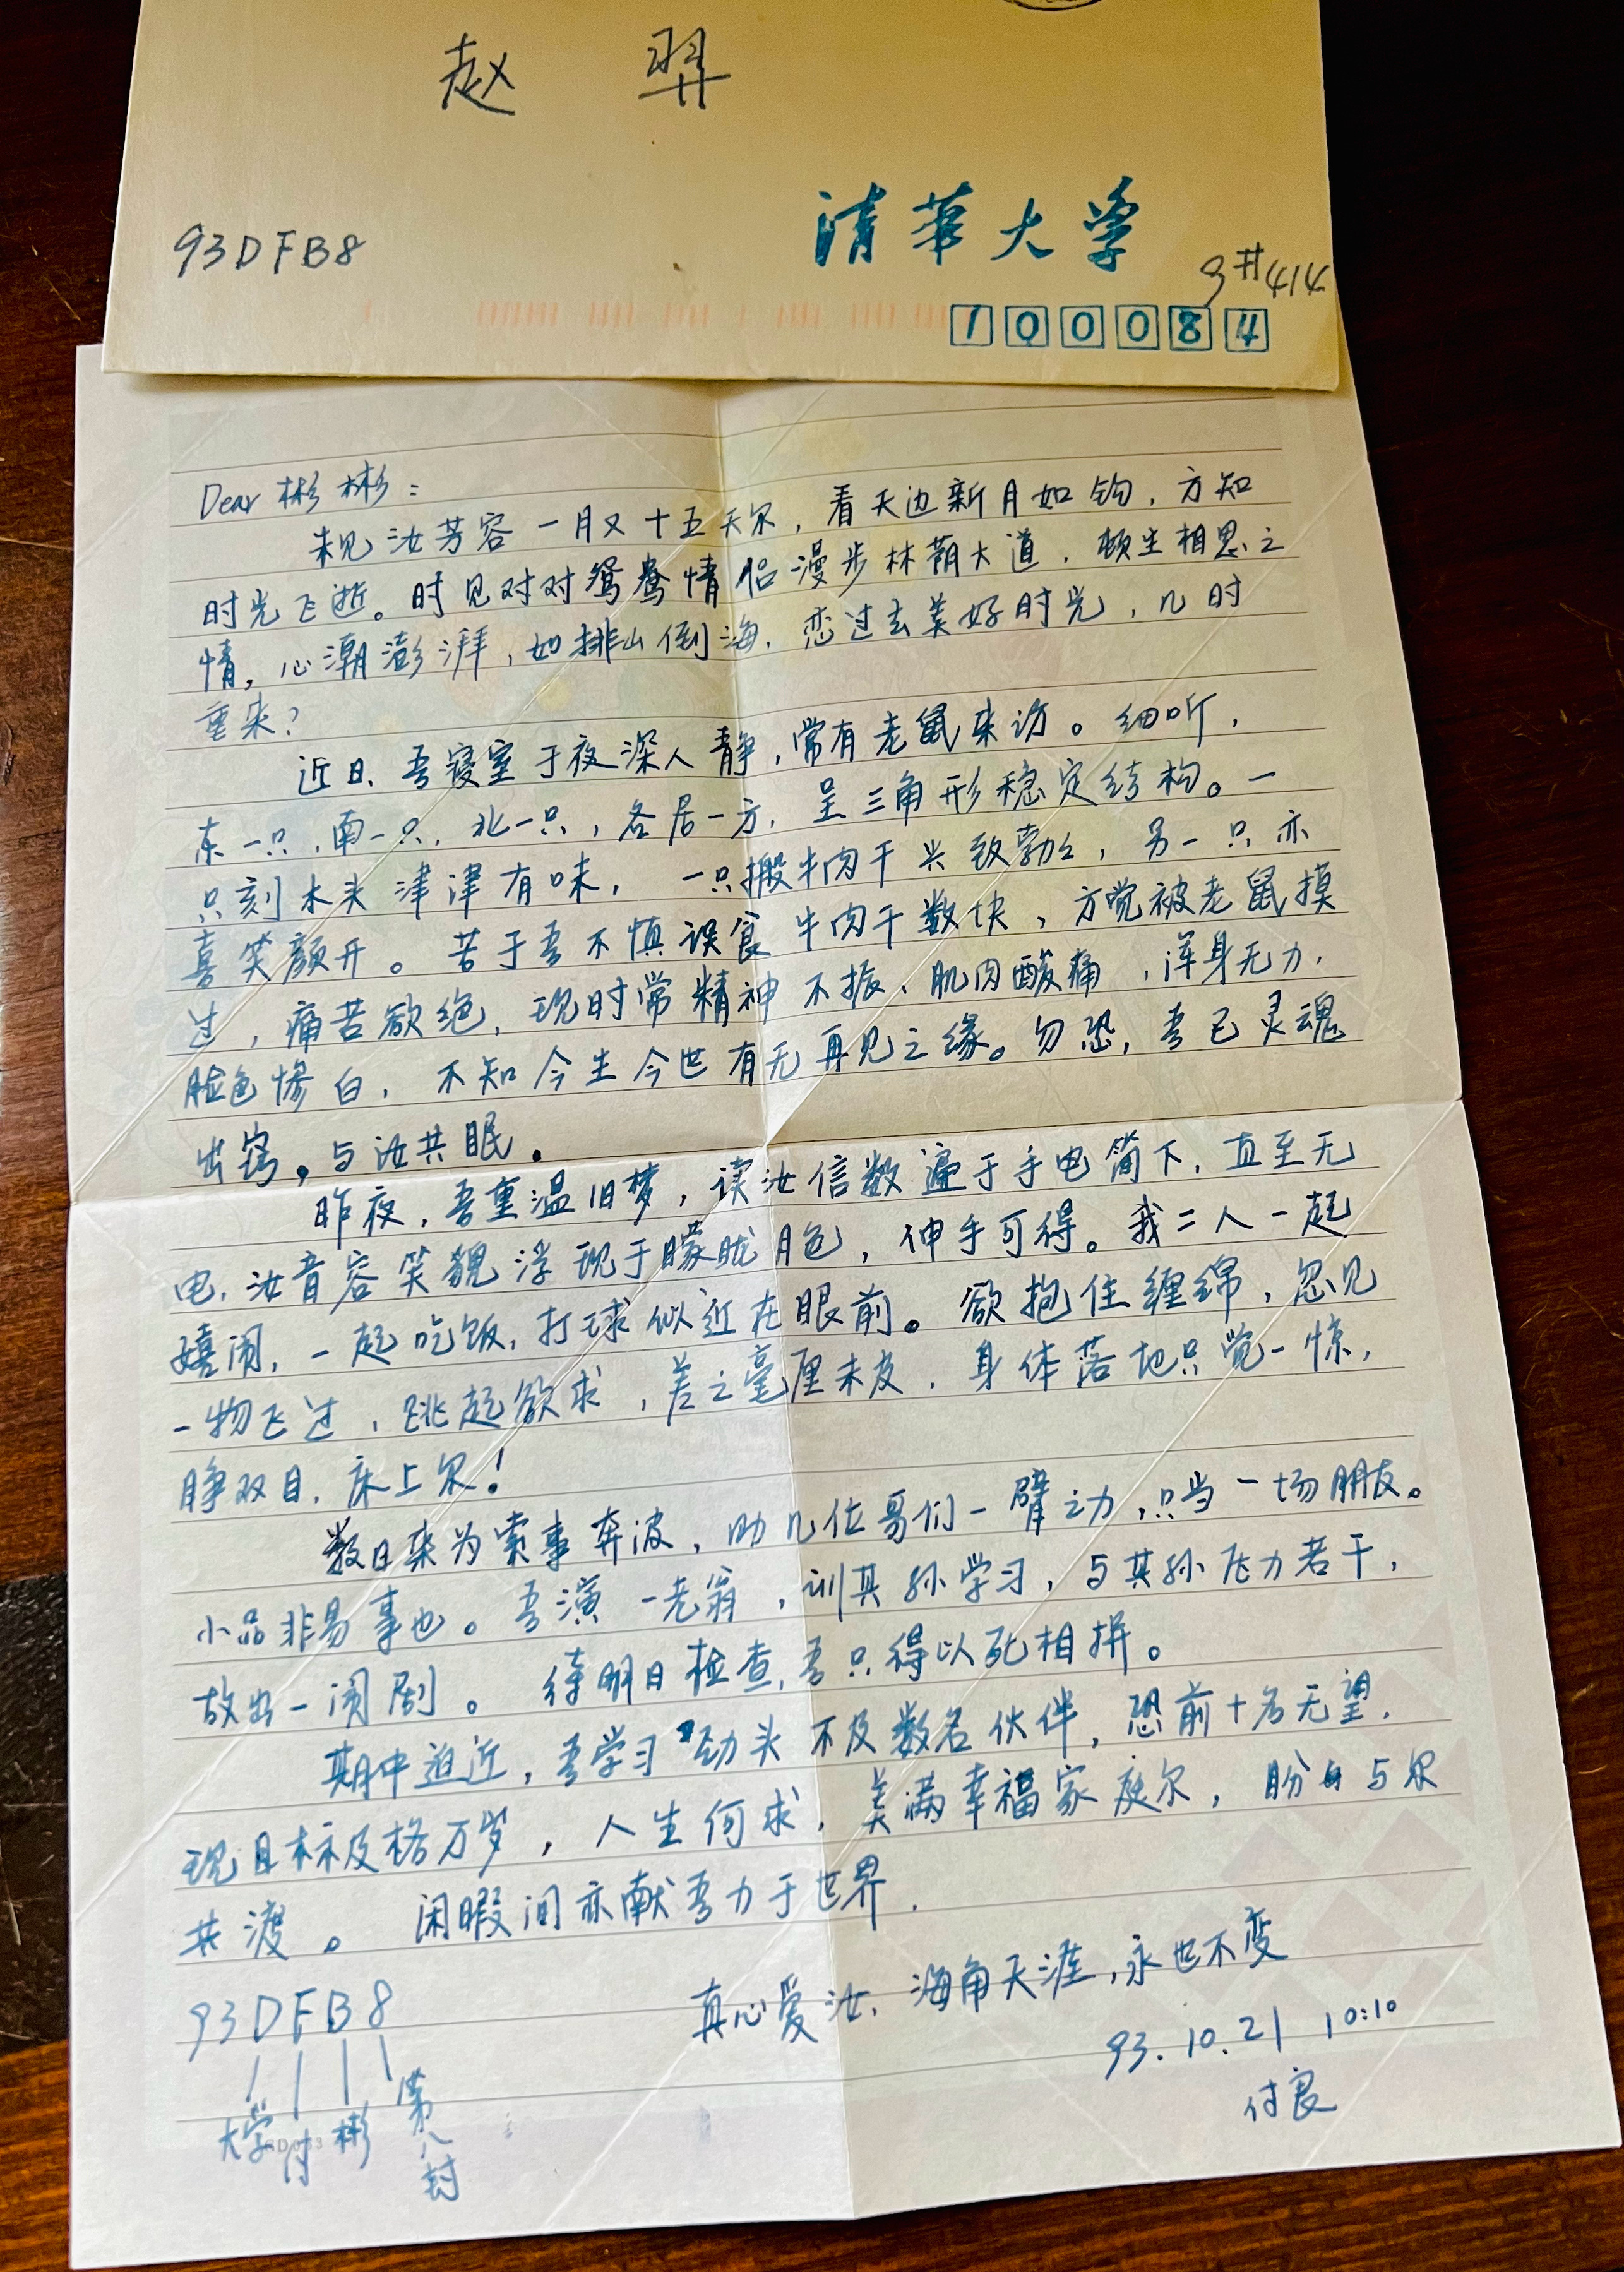 赵 羿
93DFB8
清华大学
9#414
100084
Dear 彬彬：
未见汝芳容一月又十五天尔，看天边新月如钩，方知
时光飞逝。时见对对鸳鸯情侣漫步林荫大道，顿生相思之
情，心潮澎湃，如排山倒海，恋过去美好时光，几时
重来？
近日，吾寝室于夜深人静，常有老鼠来访。细听，
东一只，南一只，北一只，各居一方，呈三角形稳定结构。一
只刻木头津津有味，一只搬牛肉干兴致勃勃，另一只亦
喜笑颜开。苦于吾不慎误食牛肉干数块，方觉被老鼠摸
过，痛苦欲绝，现时常精神不振、肌肉酸痛，浑身无力，
脸色惨白，不知今生今世有无再见之缘。勿恐，吾已灵魂
出窍，与汝共眠。
昨夜，吾重温旧梦，读汝信数遍于手电筒下，直至无
电，汝音容笑貌浮现于朦胧月色，伸手可得。我二人一起
嬉闹，一起吃饭，打球似近在眼前。欲抱住缠绵，忽见
一物飞过，跳起欲求，差之毫厘未及，身体落地只觉一惊，
睁双目，床上尔！
数日来为索事奔波，助几位哥们一臂之力，只当一场朋友。
小品非易事也。吾演一老翁，训其孙学习，与其孙 力若干，
故出一闹剧。待明日检查，吾只得以死相拼。
期中迫近，吾学习劲头不及数名伙伴，恐前十名无望，
现目标及格万岁，人生何求，美满幸福家庭尔，盼 与尔
共渡。闲暇间亦献吾力于世界．
真心爱汝，海角天涯，永世不变
93DFB8
93.10.21 10:10
大学 付 彬 第八封
付良